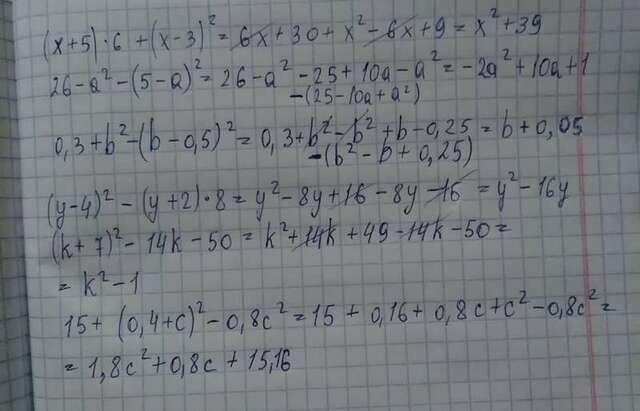 (x+5)·6+(x-3)²=6x+30+x²-6x+9=x²+39
26-a²-(5-a)²=26-a²-25+10a-a²=-2a²+10a+1
-(25-10a+a²)
0,3+b²-(b-0,5)²=0,3+b²-b²+b-0,25=b+0,05
-(b²-b+0,25)
(y-4)²-(y+2)·8=y²-8y+16-8y-16=y²-16y
(k+7)²-14k-50=k²+14k+49-14k-50=
=k²-1
15+(0,4+c)²-0,8c²=15+0,16+0,8c+c²-0,8c²=
=1,8c²+0,8c+15,16